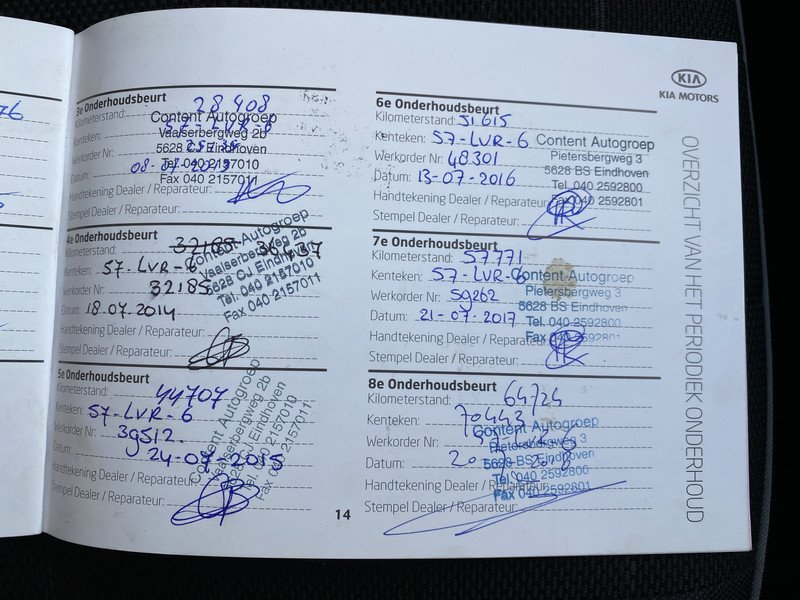 76
3e Onderhoudsbeurt
Kilometerstand: 28 408
Content Autogroep
Kenteken: 57-LVR-6
Vaalserbergweg 2b
Werkorder Nr:
5628 CJ Eindhoven
Datum:
Tel. 040 2157010
Fax 040 2157011
Handtekening Dealer / Reparateur:
Stempel Dealer / Reparateur:
4e Onderhoudsbeurt
Kilometerstand: 32185
Kenteken: 57-LVR-6
Werkorder Nr: 32185
Datum: 18.07.2014
Content Autogroep
Vaalserbergweg 2b
5628 CJ Eindhoven
Tel. 040 2157010
Fax 040 2157011
Handtekening Dealer / Reparateur:
Stempel Dealer / Reparateur:
5e Onderhoudsbeurt
Kilometerstand: 44707
Kenteken: 57-LVR-6
Werkorder Nr: 39512
Datum: 24-07-2015
Content Autogroep
Vaalserbergweg 2b
5628 CJ Eindhoven
Tel. 040 2157010
Fax 040 2157011
Handtekening Dealer / Reparateur:
Stempel Dealer / Reparateur:
14
6e Onderhoudsbeurt
Kilometerstand: 51615
Kenteken: 57-LVR-6
Werkorder Nr: 48301
Datum: 13-07-2016
Content Autogroep
Pietersbergweg 3
5628 BS Eindhoven
Tel. 040 2592800
Fax 040 2592801
Handtekening Dealer / Reparateur:
Stempel Dealer / Reparateur:
7e Onderhoudsbeurt
Kilometerstand: 57771
Kenteken: 57-LVR-6
Werkorder Nr: 59262
Datum: 21-07-2017
Content Autogroep
Pietersbergweg 3
5628 BS Eindhoven
Tel. 040 2592800
Fax 040 2592801
Handtekening Dealer / Reparateur:
Stempel Dealer / Reparateur:
8e Onderhoudsbeurt
Kilometerstand: 64724
Kenteken: 70443
Werkorder Nr: 57-LVR-6
Datum:
Content Autogroep
Pietersbergweg 3
5628 BS Eindhoven
Tel. 040 2592800
Fax 040 2592801
Handtekening Dealer / Reparateur:
Stempel Dealer / Reparateur:
KIA
KIA MOTORS
OVERZICHT VAN HET PERIODIEK ONDERHOUD